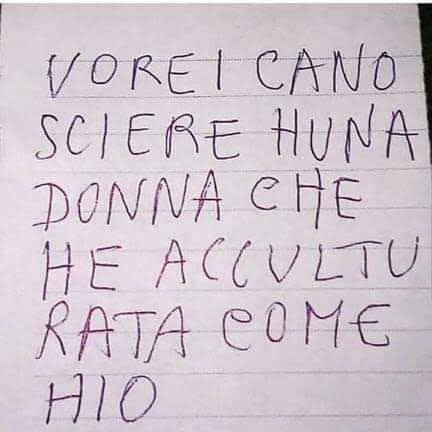 VOREI CANO
SCIERE HUNA
DONNA CHE
HE ACCULTU
RATA COME
HIO